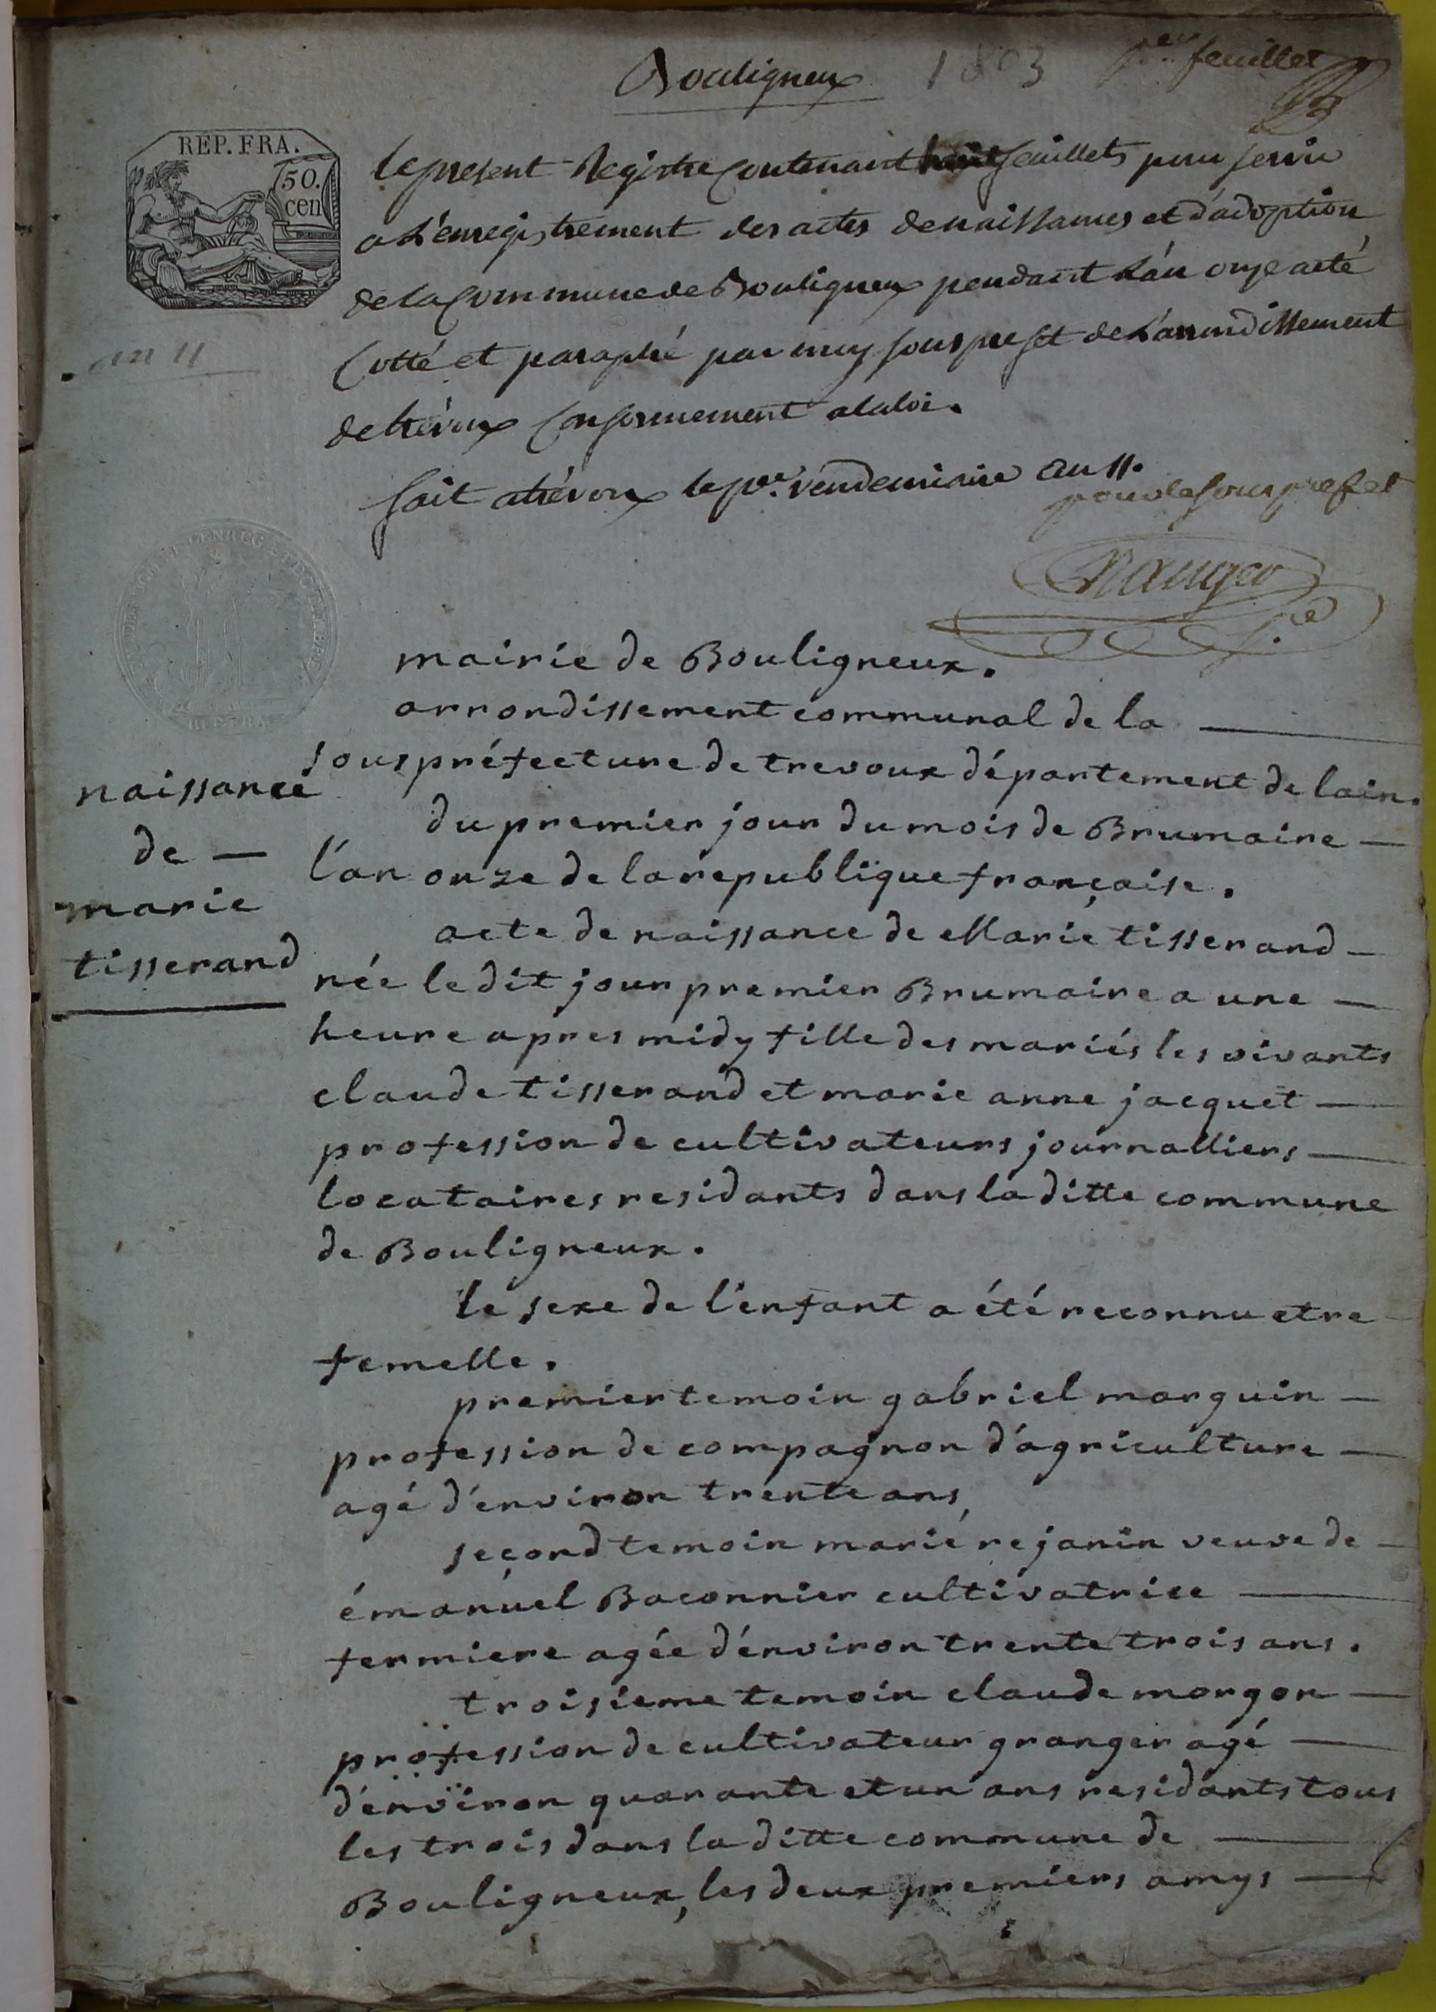 Bouligneux 1803 1er feuillet
REP. FRA.
50.
cen
le present Registre Contenant huit feuillets pour servir
a L'enregistrement des actes de naissances et d'adoption
de la Commune de Bouligneux pendant L'an onze a eté
Cotté et paraphé par moy sous prefet de L'arrondissement
an 11
de trévoux Conformement a la loi.
fait a trévoux le pr. vendemiaire an 11.
pour le sous prefet
mairie de Bouligneux.
arrondissement communal de la
sous préfecture de trevoux département de lain.
naissance
de
marie
tisserand
du premier jour du mois de Brumaire
l'an onze de la republique française.
acte de naissance de Marie tisserand
née le dit jour premier Brumaire a une
heure apres midy fille des mariés les vivants
claude tisserand et marie anne jacquet
profession de cultivateurs journalliers
locataires residants dans la ditte commune
de Bouligneux.
le sexe de l'enfant a été reconnu etre
femelle.
premier temoin gabriel marguin
profession de compagnon d'agriculture
agé d'environ trente ans
second temoin marie rejanin veuve de
émanuel Baconnier cultivatrice
fermiere agée d'énviron trente trois ans.
troisieme temoin claude morgon
profession de cultivateur granger agé
d'énviron quarante et un ans residants tous
les trois dans la ditte commune de
Bouligneux, les deux premiers amys